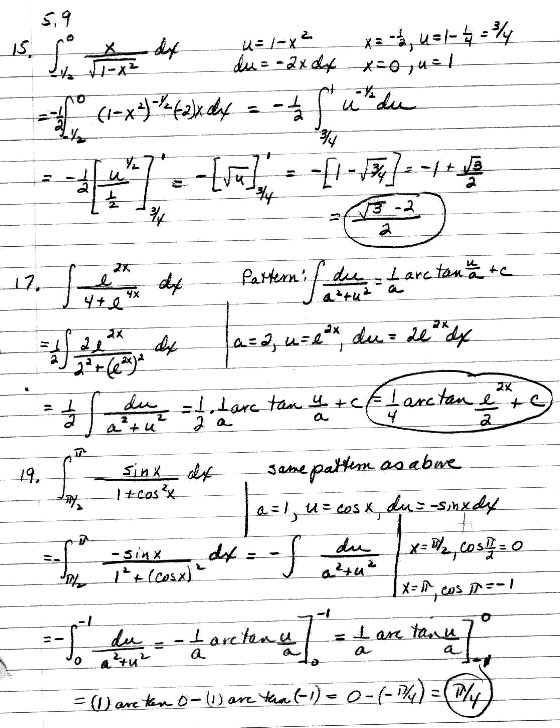 5.9
15. ∫_{-1/2}^{0} x/√(1-x²) dx   u = 1-x²   x = -1/2, u = 1-1/4 = 3/4
du = -2x dx   x = 0, u = 1
= -1/2 ∫_{-1/2}^{0} (1-x²)^{-1/2} (-2)x dx = -1/2 ∫_{3/4}^{1} u^{-1/2} du
= -1/2 [u^{1/2}/(1/2)]_{3/4}^{1} = -[√u]_{3/4}^{1} = -[1-√(3/4)] = -1 + √3/2
= (√3 - 2)/2
17. ∫ e^{2x}/(4+e^{4x}) dx   Pattern: ∫ du/(a²+u²) = 1/a arc tan u/a + c
= 1/2 ∫ 2e^{2x}/(2²+(e^{2x})²) dx   a = 2, u = e^{2x}, du = 2e^{2x} dx
= 1/2 ∫ du/(a²+u²) = 1/2 · 1/a arc tan u/a + c = 1/4 arctan e^{2x}/2 + c
19. ∫_{π/2}^{π} sin x/(1+cos²x) dx   same pattern as above
a = 1, u = cos x, du = -sin x dx
= -∫_{π/2}^{π} -sin x/(1²+(cos x)²) dx = -∫ du/(a²+u²)   x = π/2, cos π/2 = 0
x = π, cos π = -1
= -∫_{0}^{-1} du/(a²+u²) = -1/a arctan u/a ]_{0}^{-1} = 1/a arc tan u/a ]_{-1}^{0}
= (1) arc tan 0 - (1) arc tan (-1) = 0 - (-π/4) = π/4